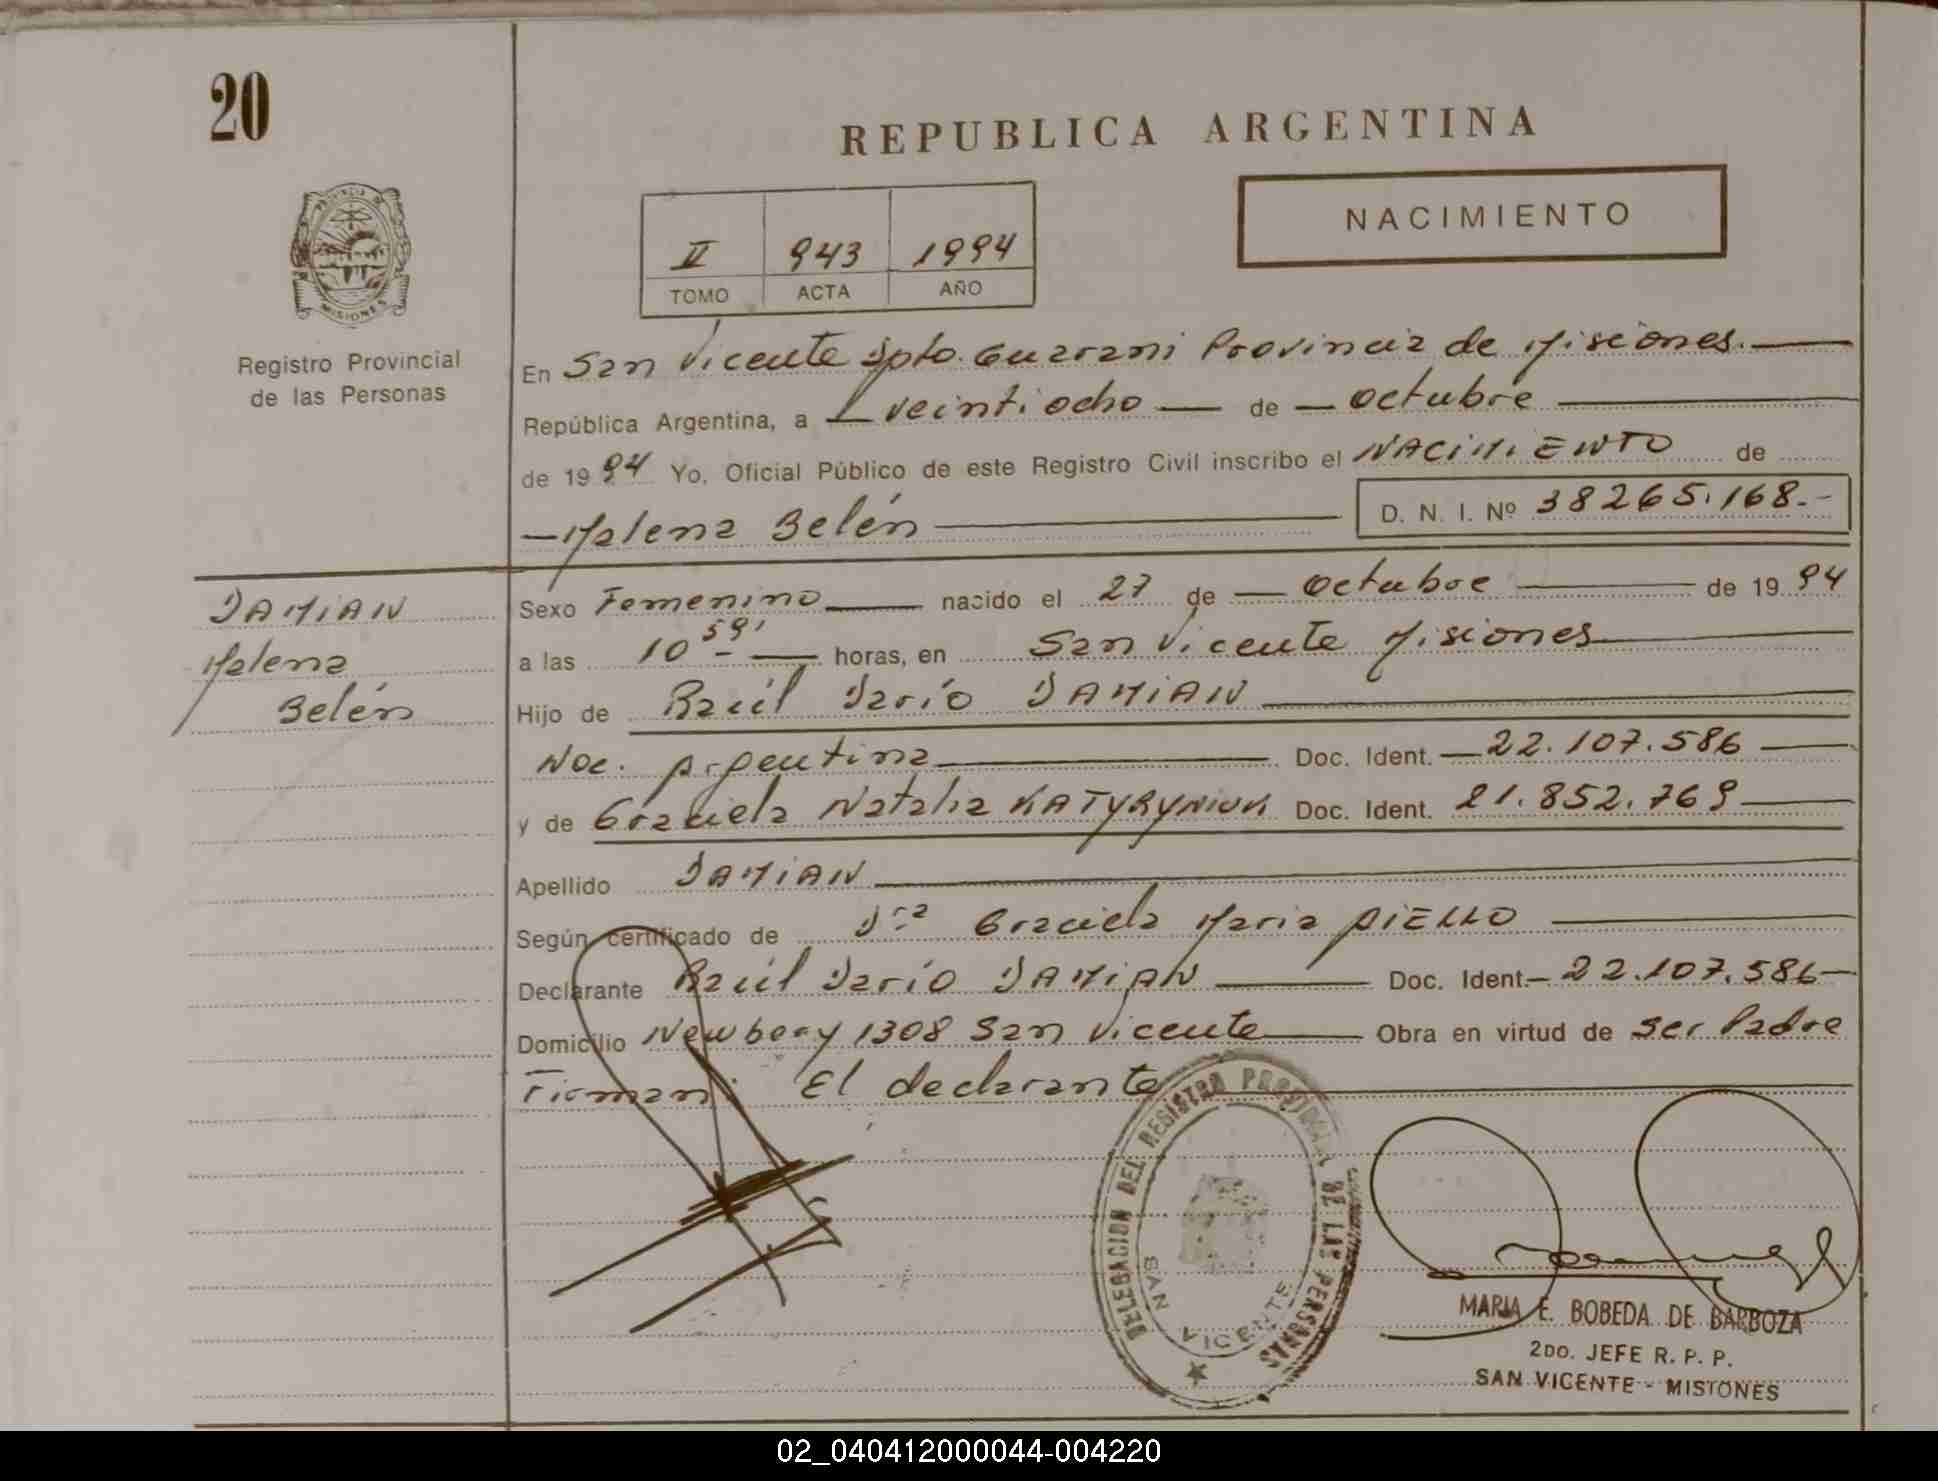 20
REPUBLICA ARGENTINA
NACIMIENTO
II 943 1994
TOMO ACTA AÑO
PROVINCIA DE MISIONES
Registro Provincial
de las Personas
En San Vicente Dpto. Guarani Provincia de Misiones.
República Argentina, a veintiocho de octubre
de 1994 Yo, Oficial Público de este Registro Civil inscribo el NACIMIENTO de
Malena Belén D. N. I. Nº 38265.168.-
DAMIAN
Malena
Belén
Sexo Femenino nacido el 27 de octubre de 1994
a las 10 59' horas, en San Vicente Misiones
Hijo de Raúl Darío DAMIAN
Nac. Argentina Doc. Ident. 22.107.586
y de Graciela Natalia KATYRYNIUK Doc. Ident. 21.852.769
Apellido DAMIAN
Según certificado de Dra Graciela Maria AIELLO
Declarante Raúl Darío DAMIAN Doc. Ident. 22.107.586
Domicilio Newbery 1308 San Vicente Obra en virtud de ser Padre
Firman: El declarante
DELEGACION DEL REGISTRO PROVINCIAL DE LAS PERSONAS
SAN VICENTE
MARIA E. BOBEDA DE BARBOZA
2DO. JEFE R. P. P.
SAN VICENTE - MISIONES
02_040412000044-004220